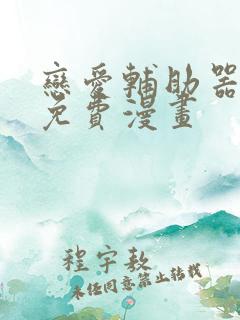 戀愛輔助器
免費漫畫
程宇敖
未经同意禁止转载